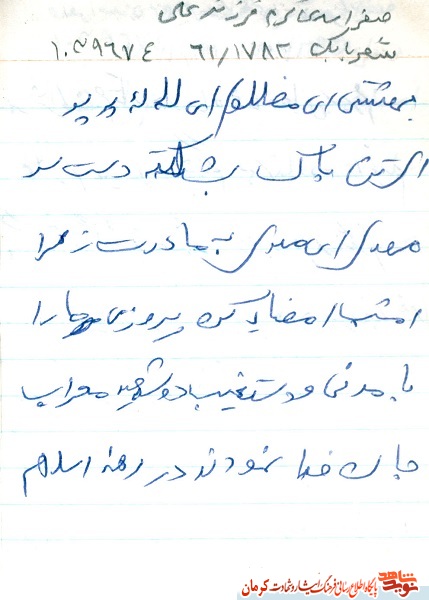 صفر اسدی کرم فرزند علی
شهربابک ۶۱/۱۷۸۲ ۱۰۳۹۶۷۴
بهشتی ای مظلوم ای لاله پر پر
ای تن پاک شکسته دست سر
مهدی ای مهدی به مادرت زهرا
امشب امضا کن پیروزی ما را
با مدنی و دستغیب دو شهید محراب
جان فدا نمودند در رهه اسلام
نوید شاهد
پایگاه اطلاع رسانی فرهنگ ایثار و شهادت کرمان